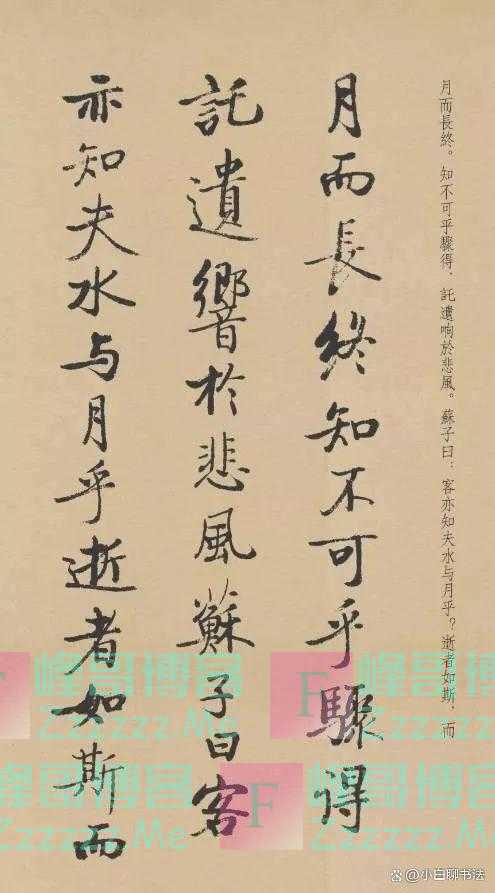 月而長終。知不可乎驟得，託遺响於悲風。蘇子曰：客亦知夫水与月乎？逝者如斯，而
月而長終知不可乎驟得
託遺響於悲風蘇子曰客
亦知夫水与月乎逝者如斯而
F 峰哥博客
Zzzzz.Me
F 峰哥博客
Zzzzz.Me
峰哥博客
Zzzzz.Me
F 峰哥博客
Zzzzz.Me
@小白聊书法